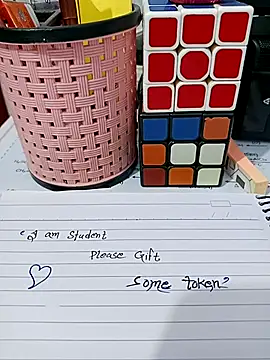 “I am Student
Please Gift
Some token”